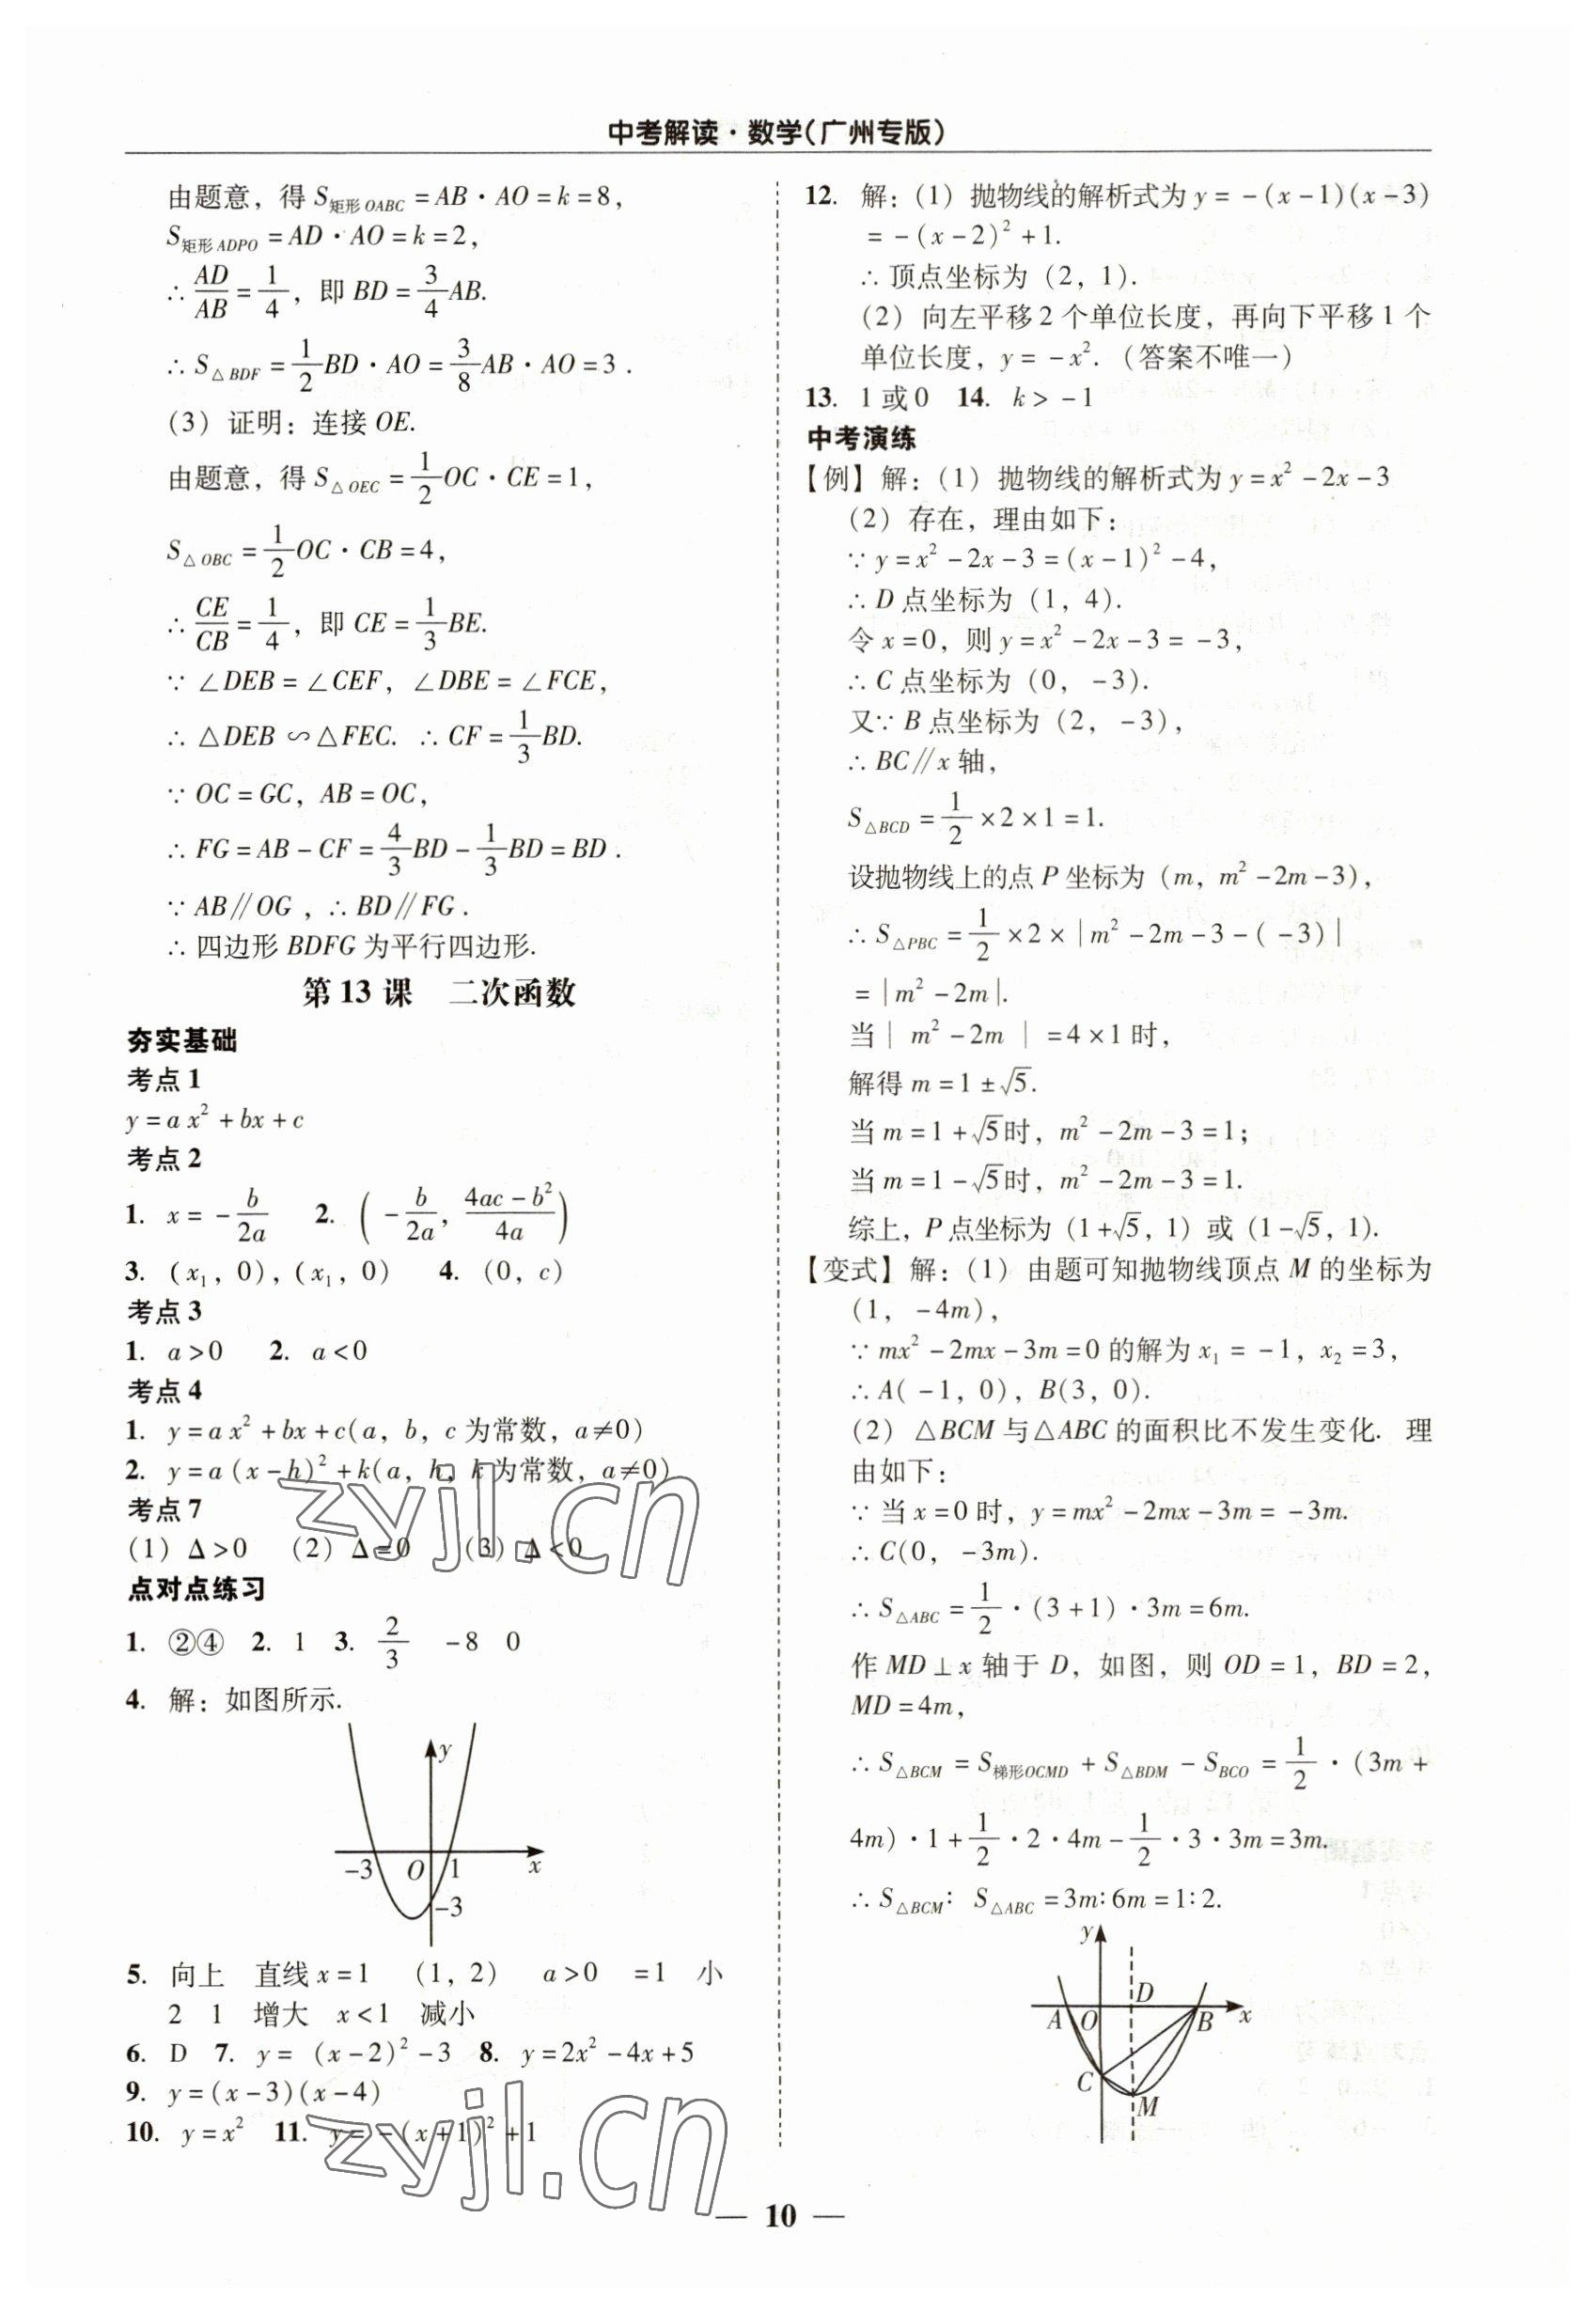 中考解读·数学(广州专版)
由题意，得 S矩形OABC = AB·AO = k = 8，
S矩形ADPO = AD·AO = k = 2，
∴ AD/AB = 1/4，即 BD = 3/4 AB.
∴ S△BDF = 1/2 BD·AO = 3/8 AB·AO = 3 .
(3) 证明：连接 OE.
由题意，得 S△OEC = 1/2 OC·CE = 1，
S△OBC = 1/2 OC·CB = 4，
∴ CE/CB = 1/4，即 CE = 1/3 BE.
∵ ∠DEB = ∠CEF，∠DBE = ∠FCE，
∴ △DEB ∽ △FEC. ∴ CF = 1/3 BD.
∵ OC = GC，AB = OC，
∴ FG = AB − CF = 4/3 BD − 1/3 BD = BD .
∵ AB∥OG ，∴ BD∥FG .
∴ 四边形 BDFG 为平行四边形.
第 13 课 二次函数
夯实基础
考点 1
y = a x² + bx + c
考点 2
1. x = −b/2a 2. (−b/2a，(4ac − b²)/4a)
3. (x₁，0)，(x₁，0) 4. (0，c)
考点 3
1. a > 0 2. a < 0
考点 4
1. y = a x² + bx + c(a，b，c 为常数，a ≠ 0)
2. y = a (x − h)² + k(a，h，k 为常数，a ≠ 0)
考点 7
(1) Δ > 0 (2) Δ = 0 (3) Δ < 0
点对点练习
1. ②④ 2. 1 3. 2/3 −8 0
4. 解：如图所示.
y
−3 O 1 x
−3
5. 向上 直线 x = 1 (1，2) a > 0 = 1 小
2 1 增大 x < 1 减小
6. D 7. y = (x − 2)² − 3 8. y = 2x² − 4x + 5
9. y = (x − 3)(x − 4)
10. y = x² 11. y = −(x + 1)² + 1
12. 解：(1) 抛物线的解析式为 y = −(x − 1)(x − 3)
= −(x − 2)² + 1.
∴ 顶点坐标为 (2，1).
(2) 向左平移 2 个单位长度，再向下平移 1 个
单位长度，y = −x². (答案不唯一)
13. 1 或 0 14. k > −1
中考演练
【例】解：(1) 抛物线的解析式为 y = x² − 2x − 3
(2) 存在，理由如下：
∵ y = x² − 2x − 3 = (x − 1)² − 4，
∴ D 点坐标为 (1，4).
令 x = 0，则 y = x² − 2x − 3 = −3，
∴ C 点坐标为 (0，−3).
又∵ B 点坐标为 (2，−3)，
∴ BC∥x 轴，
S△BCD = 1/2 × 2 × 1 = 1.
设抛物线上的点 P 坐标为 (m，m² − 2m − 3)，
∴ S△PBC = 1/2 × 2 × |m² − 2m − 3 − (−3)|
= |m² − 2m|.
当 | m² − 2m | = 4 × 1 时，
解得 m = 1 ± √5.
当 m = 1 + √5时，m² − 2m − 3 = 1；
当 m = 1 − √5时，m² − 2m − 3 = 1.
综上，P 点坐标为 (1 + √5，1) 或 (1 − √5，1).
【变式】解：(1) 由题可知抛物线顶点 M 的坐标为
(1，−4m)，
∵ mx² − 2mx − 3m = 0 的解为 x₁ = −1，x₂ = 3，
∴ A(−1，0)，B(3，0).
(2) △BCM 与△ABC 的面积比不发生变化. 理
由如下：
∵ 当 x = 0 时，y = mx² − 2mx − 3m = −3m.
∴ C(0，−3m).
∴ S△ABC = 1/2 ·(3 + 1)·3m = 6m.
作 MD⊥x 轴于 D，如图，则 OD = 1，BD = 2，
MD = 4m，
∴ S△BCM = S梯形OCMD + S△BDM − SBCO = 1/2 ·(3m +
4m)·1 + 1/2 ·2·4m − 1/2 ·3·3m = 3m.
∴ S△BCM∶S△ABC = 3m∶6m = 1∶2.
y
A O D B x
C
M
— 10 —
zyjl.cn
zyjl.cn